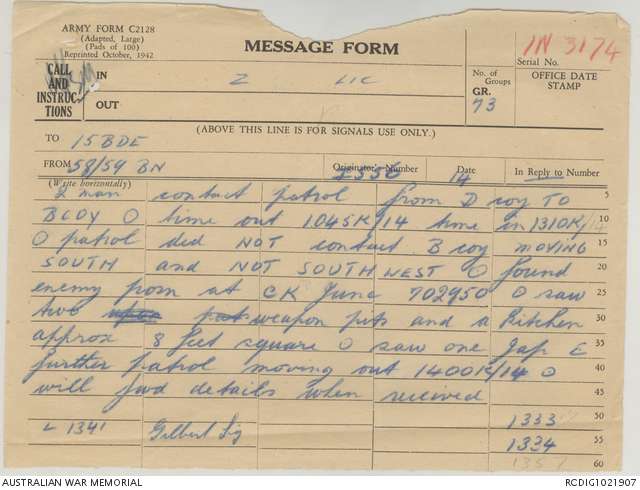 ARMY FORM C2128
(Adapted, Large)
(Pads of 100)
Reprinted October, 1942
MESSAGE FORM
IN 3174
Serial No.
CALL AND INSTRUCTIONS
IN Z LIC
OUT
No. of Groups
GR. 73
OFFICE DATE STAMP
(ABOVE THIS LINE IS FOR SIGNALS USE ONLY.)
TO 15 BDE
FROM 58/59 BN
Originator's Number
Date 14
In Reply to Number
(Write horizontally)
2 man contact patrol from D coy TO 5
BCOY O time out 1045K/14 time in 1310K/14 10
O patrol did NOT contact B coy MOVING 15
SOUTH and NOT SOUTH WEST O found 20
enemy posn at CK Junc 702950 O saw 25
two weapon pits and a kitchen
approx 8 feet square O saw one Jap E 35
further patrol moving out 1400K/14 O 40
will fwd details when received 45
1333 50
L 1341 Gilbert Sig 1334 55
135 60
AUSTRALIAN WAR MEMORIAL
RCDIG1021907